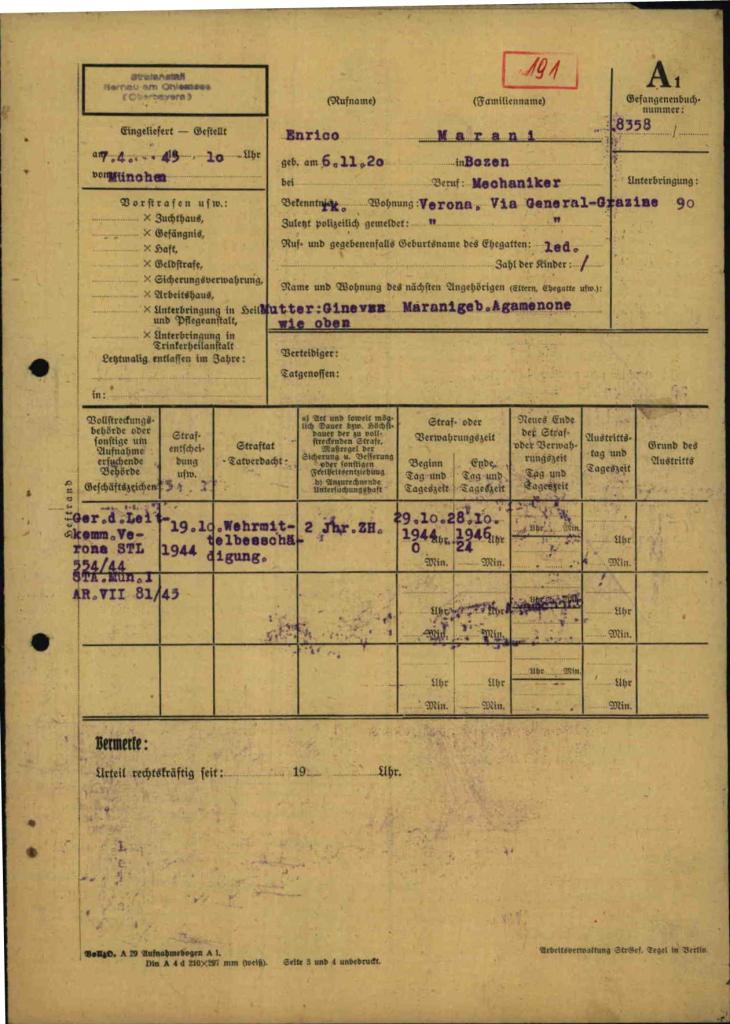 Strafanstalt
Bernau am Chiemsee
(Oberbayern)
191
A1
Gefangenenbuch-
nummer:
8358 /
(Rufname) (Familienname)
Eingeliefert — Gestellt
am 7.4. 45 10 Uhr
von München
Enrico Marani
geb. am 6.11.20 in Bozen
bei Beruf: Mechaniker
Unterbringung:
Bekenntnis: rk. Wohnung: Verona, Via General-Grazine 90
Zuletzt polizeilich gemeldet: " "
Ruf- und gegebenenfalls Geburtsname des Ehegatten: led.
Zahl der Kinder: /
Name und Wohnung des nächsten Angehörigen (Eltern, Ehegatte usw.):
Mutter: Ginevee Marani geb. Agamenone
wie oben
Vorstrafen usw.:
× Zuchthaus,
× Gefängnis,
× Haft,
× Geldstrafe,
× Sicherungsverwahrung,
× Arbeitshaus,
× Unterbringung in Heil-
und Pflegeanstalt,
× Unterbringung in
Trinkerheilanstalt
Letztmalig entlassen im Jahre:
in:
Verteidiger:
Tatgenossen:
Vollstreckungs-
behörde oder
sonstige um
Aufnahme
ersuchende
Behörde
Geschäftszeichen
Straf-
entschei-
dung
usw.
Straftat
- Tatverdacht -
a) Art und soweit mög-
lich Dauer bzw. Höchst-
dauer der zu voll-
streckenden Strafe,
Maßregel der
Sicherung u. Besserung
oder sonstigen
Freiheitsentziehung
b) Anzurechnende
Untersuchungshaft
Straf- oder
Verwahrungszeit
Beginn
Tag und
Tageszeit
Ende
Tag und
Tageszeit
Neues Ende
der Straf-
oder Verwah-
rungszeit
Tag und
Tageszeit
Austritts-
tag und
Tageszeit
Grund des
Austritts
Heftrand
Ger.d.Leit-
komm.Ve-
rona STL
554/44
STA.Mün.I
AR.VII 81/45
19.10.
1944
Wehrmit-
telbeschä-
digung.
2 Jhr.ZH.
29.10.
1944 Uhr
0 Min.
28.10.
1946 Uhr
24 Min.
Uhr Min.
Uhr
Min.
Uhr
Min.
Uhr
Min.
Uhr
Min.
Uhr
Min.
Uhr
Min.
Uhr
Min.
Uhr Min.
Uhr
Min.
Vermerke:
Urteil rechtskräftig seit: 19 Uhr.
VollzO. A 29 Aufnahmebogen A 1.
Din A 4 d 210×297 mm (weiß). Seite 3 und 4 unbedruckt.
Arbeitsverwaltung StrGef. Tegel in Berlin.